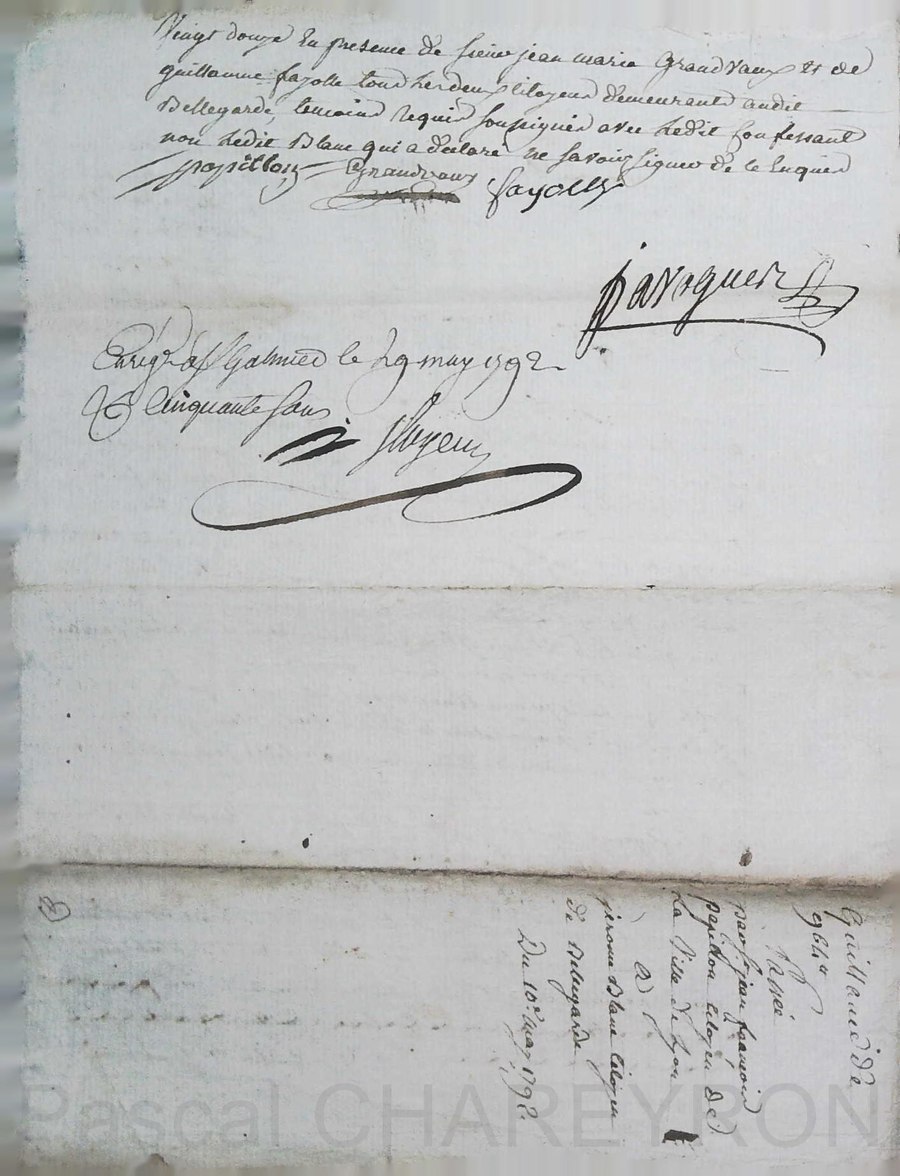 Vingt douze En presence de sieur jean marie Grandvaux et de
guillaume fayolle tous les deux Citoyens demeurant audit
Bellegarde, temoins requis soussignés avec ledit Confessant
non ledit Blanc qui a déclaré ne savoir signer de ce Enquis
papillon Grandvaux fayolle
Javoguer
Enregé a St Galmier le 29 may 1792
Cinquante sous
Guillaume de
passée
par Sr jean françois
papillon Citoyen de
La Ville de Lyon
A
jerome Blanc Citoyen
de Bellegarde
Du 10e may 1792
Pascal CHAREYRON